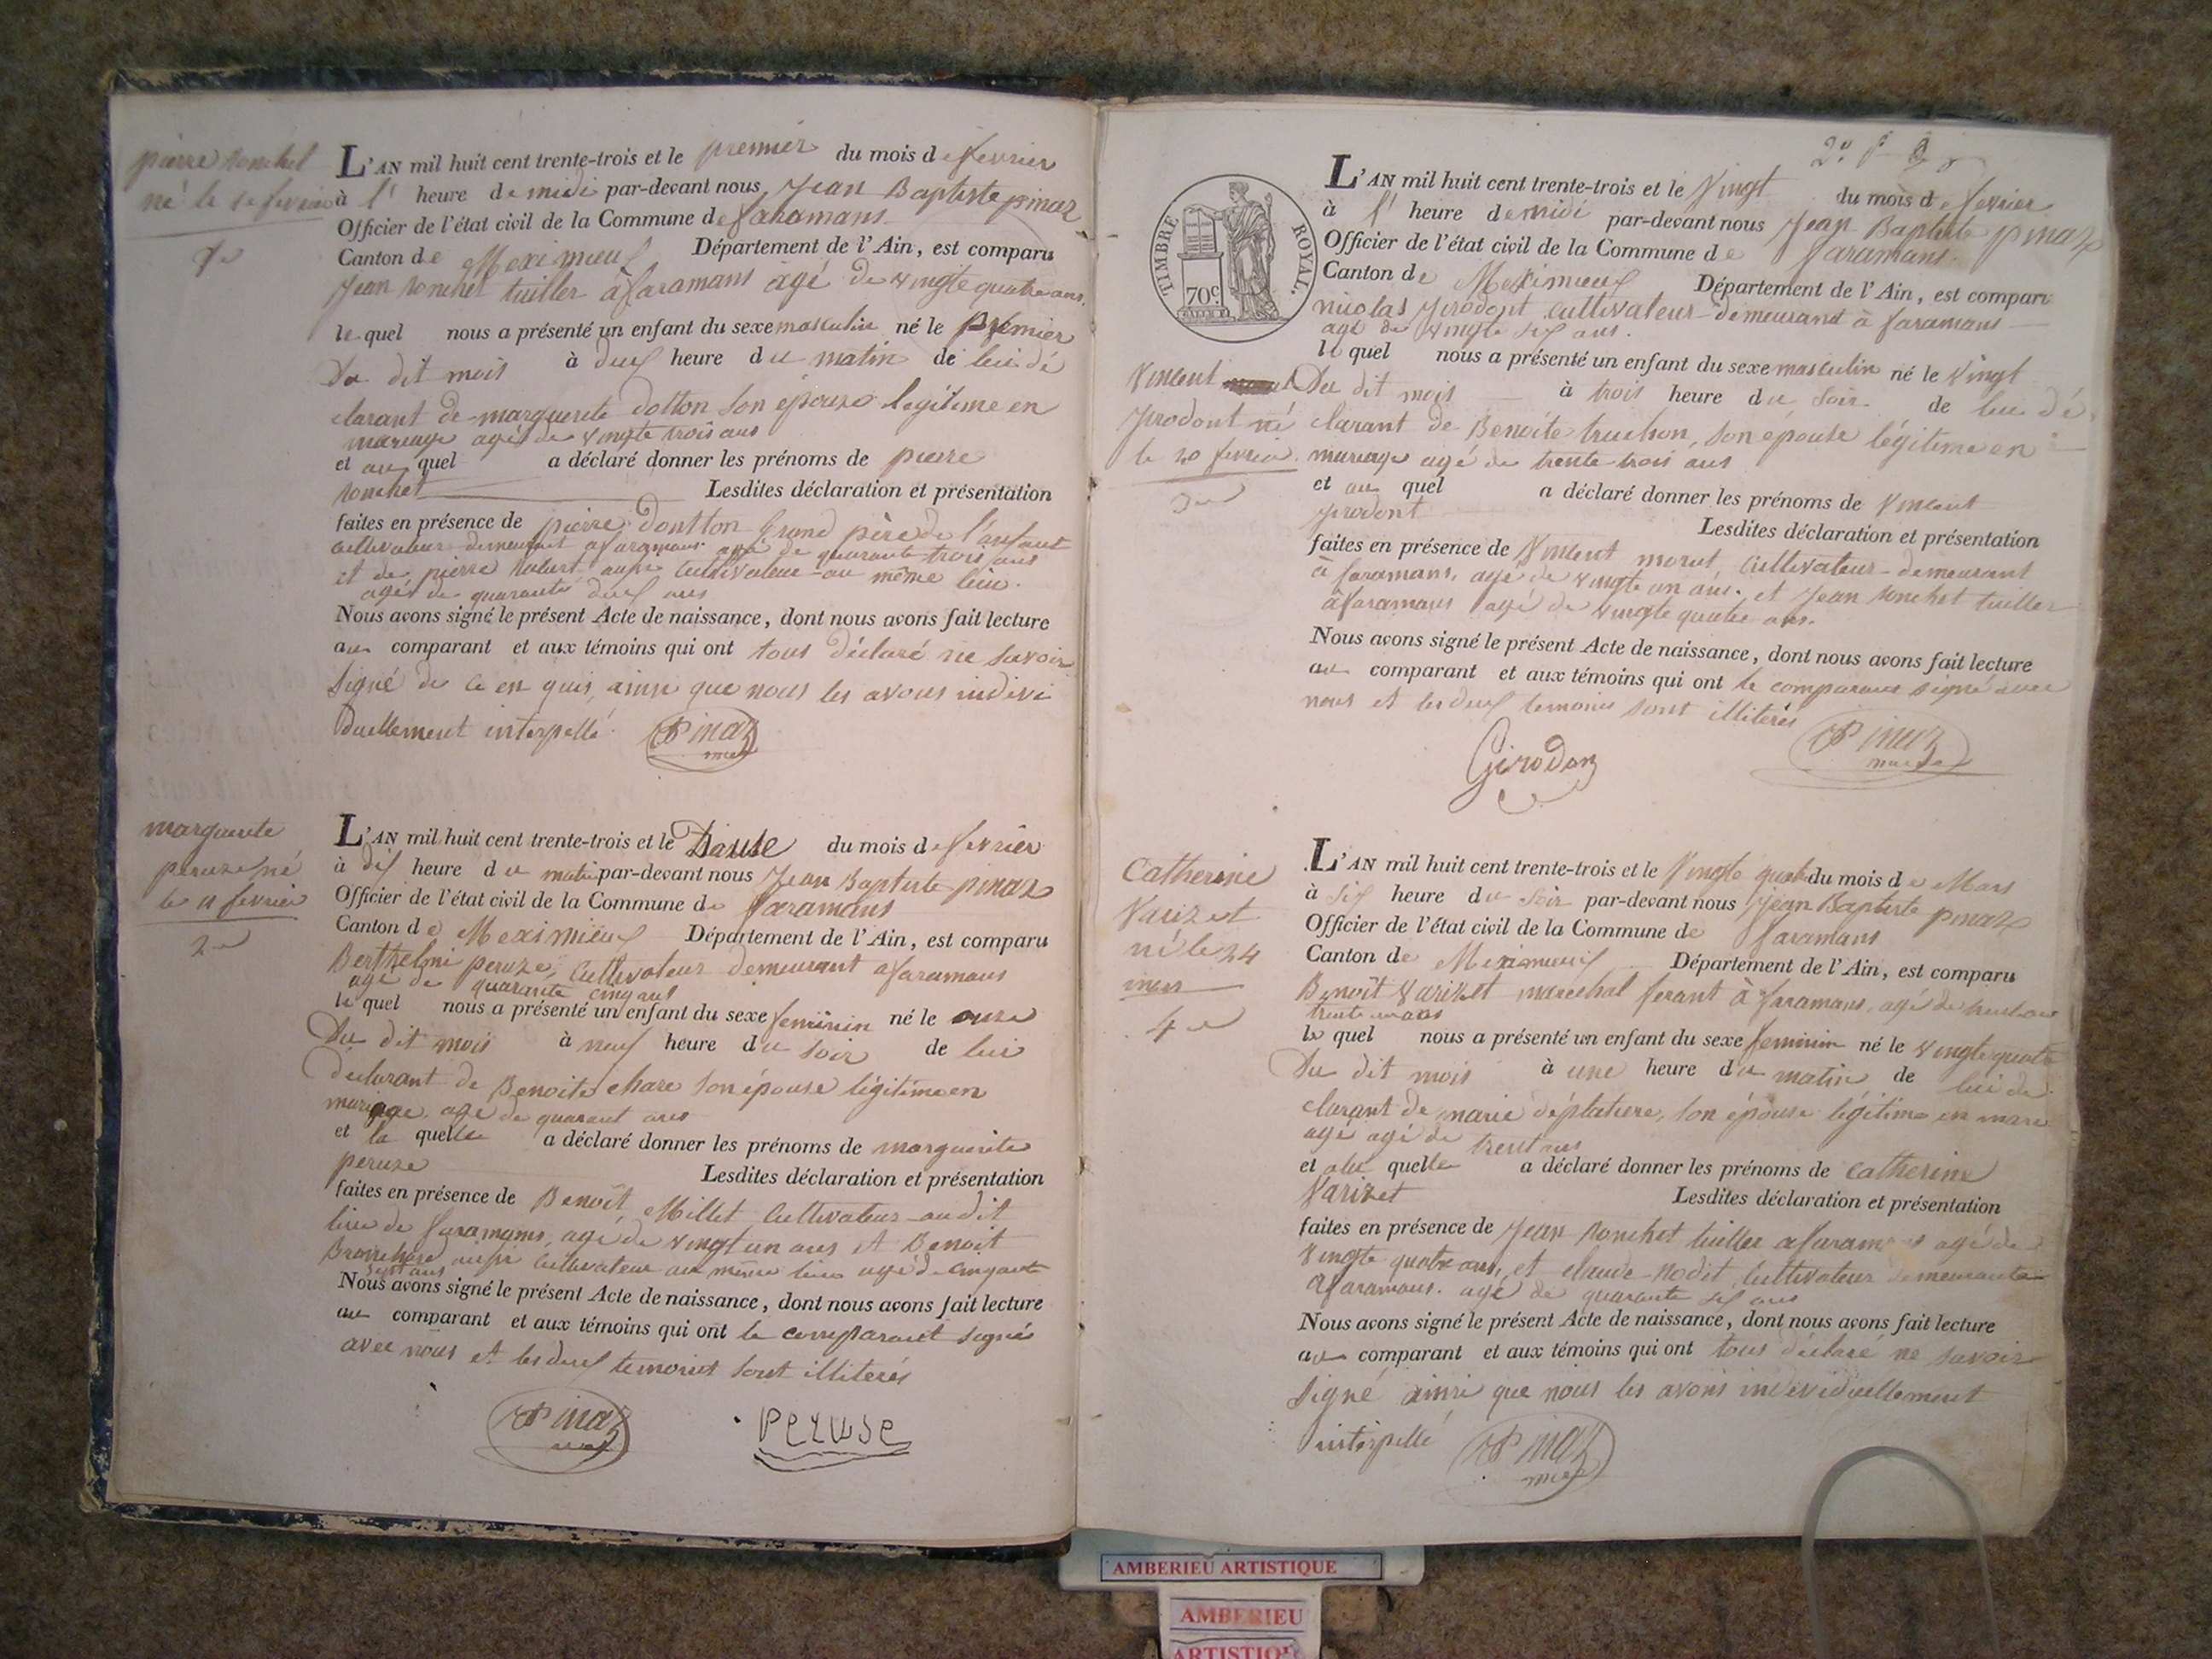 pierre ronchet
né le 1e fevrier
1e
L'AN mil huit cent trente-trois et le premier du mois de fevrier
à l' heure de midi par-devant nous, Jean Baptiste pinaz
Officier de l'état civil de la Commune de faramans
Canton de Meximieux Département de l'Ain, est comparu
Jean ronchet tuiller à faramans agé de vingte quatre ans.
le quel nous a présenté un enfant du sexe masculin né le premier
Du dit mois à deux heure du matin de lui dé
clarant de marguerite dotton son épouze legitime en
mariage agée de vingte trois ans
et au quel a déclaré donner les prénoms de pierre
ronchet Lesdites déclaration et présentation
faites en présence de pierre Doutton Grand père de l'anfant
cultivateur demeurant a faramans agé de quarante trois ans
et de pierre aussi cultivateur au même lieu.
agés de quarante deux ans
Nous avons signé le présent Acte de naissance, dont nous avons fait lecture
au comparant et aux témoins qui ont tous déclaré ne savoir
signé de ce en quis, ainsi que nous les avons indivi
duellement interpellé Pinaz
maire
marguerite
peruze né
le 11 fevrier
2e
L'AN mil huit cent trente-trois et le Dauze du mois de fevrier
à dix heure du matin par-devant nous Jean Baptiste pinaz
Officier de l'état civil de la Commune de faramans
Canton de Meximieux Département de l'Ain, est comparu
Berthelmi peruze, Cultivateur demeurant a faramans
agé de quarante cinq ans
le quel nous a présenté un enfant du sexe feminin né le onze
Du dit mois à neuf heure du soir de lui
declarant de Benoite chare son épouse légitime en
mariage agé de quarant ans
et la quelle a déclaré donner les prénoms de marguerite
peruze Lesdites déclaration et présentation
faites en présence de Benoît Millet Cultivateur au dit
lieu de faramans, agé de vingt un ans et Benoit
aussi Cultivateur au même lieu agé de cinquante
sept ans
Nous avons signé le présent Acte de naissance, dont nous avons fait lecture
au comparant et aux témoins qui ont le comparant signés
avec nous et les deux temoins sont illiterés
Pinaz Peruse
2e f
TIMBRE ROYAL.
70c
L'AN mil huit cent trente-trois et le Vingt du mois de fevrier
à l' heure de midi par-devant nous Jean Baptiste pinaz
Officier de l'état civil de la Commune de faramans.
Canton de Meximieux Département de l'Ain, est comparu
nicolas jirodont cultivateur demeurant à faramans
agé de vingte six ans.
le quel nous a présenté un enfant du sexe masculin né le Vingt
Vincent
jirodont né
le 20 fevrier
3e
Du dit mois à trois heure du soir de lui dé
clarant de Benoite truchon, son épouse légitime en
mariage agé de trente trois ans
et au quel a déclaré donner les prénoms de Vincent
jirodont Lesdites déclaration et présentation
faites en présence de Vincent morut, cultivateur demeurant
à faramans, agé de vingte un ans. et Jean ronchet tuiller
à faramans agé de vingte quatre ans.
Nous avons signé le présent Acte de naissance, dont nous avons fait lecture
au comparant et aux témoins qui ont le comparant signé avec
nous et les deux temoins sont illiterés
Girodon Pinaz
maire
Catherine
Varizet
né le 24
mars
4e
L'AN mil huit cent trente-trois et le Vingte quatre du mois de Mars
à six heure du soir par-devant nous Jean Baptiste pinaz
Officier de l'état civil de la Commune de faramans
Canton de Meximieux Département de l'Ain, est comparu
Benoît Varizet marechal ferant à faramans, agé de
trente un ans
le quel nous a présenté un enfant du sexe feminin né le vingte quatre
Du dit mois à une heure du matin de lui dé
clarant de marie déplature, son épouse légitime en mari
age agé de trent ans
et a la quelle a déclaré donner les prénoms de Catherine
Varizet Lesdites déclaration et présentation
faites en présence de Jean Ronchet tuiller a faramans agé de
vingte quatre ans, et claude nodet Cultivateur demeurante
a faramans. agé de quarante six ans
Nous avons signé le présent Acte de naissance, dont nous avons fait lecture
au comparant et aux témoins qui ont tous déclaré ne savoir
signé ainsi que nous les avons individuellement
interpellé Pinaz
maire
AMBERIEU ARTISTIQUE
AMBERIEU
ARTISTIQUE